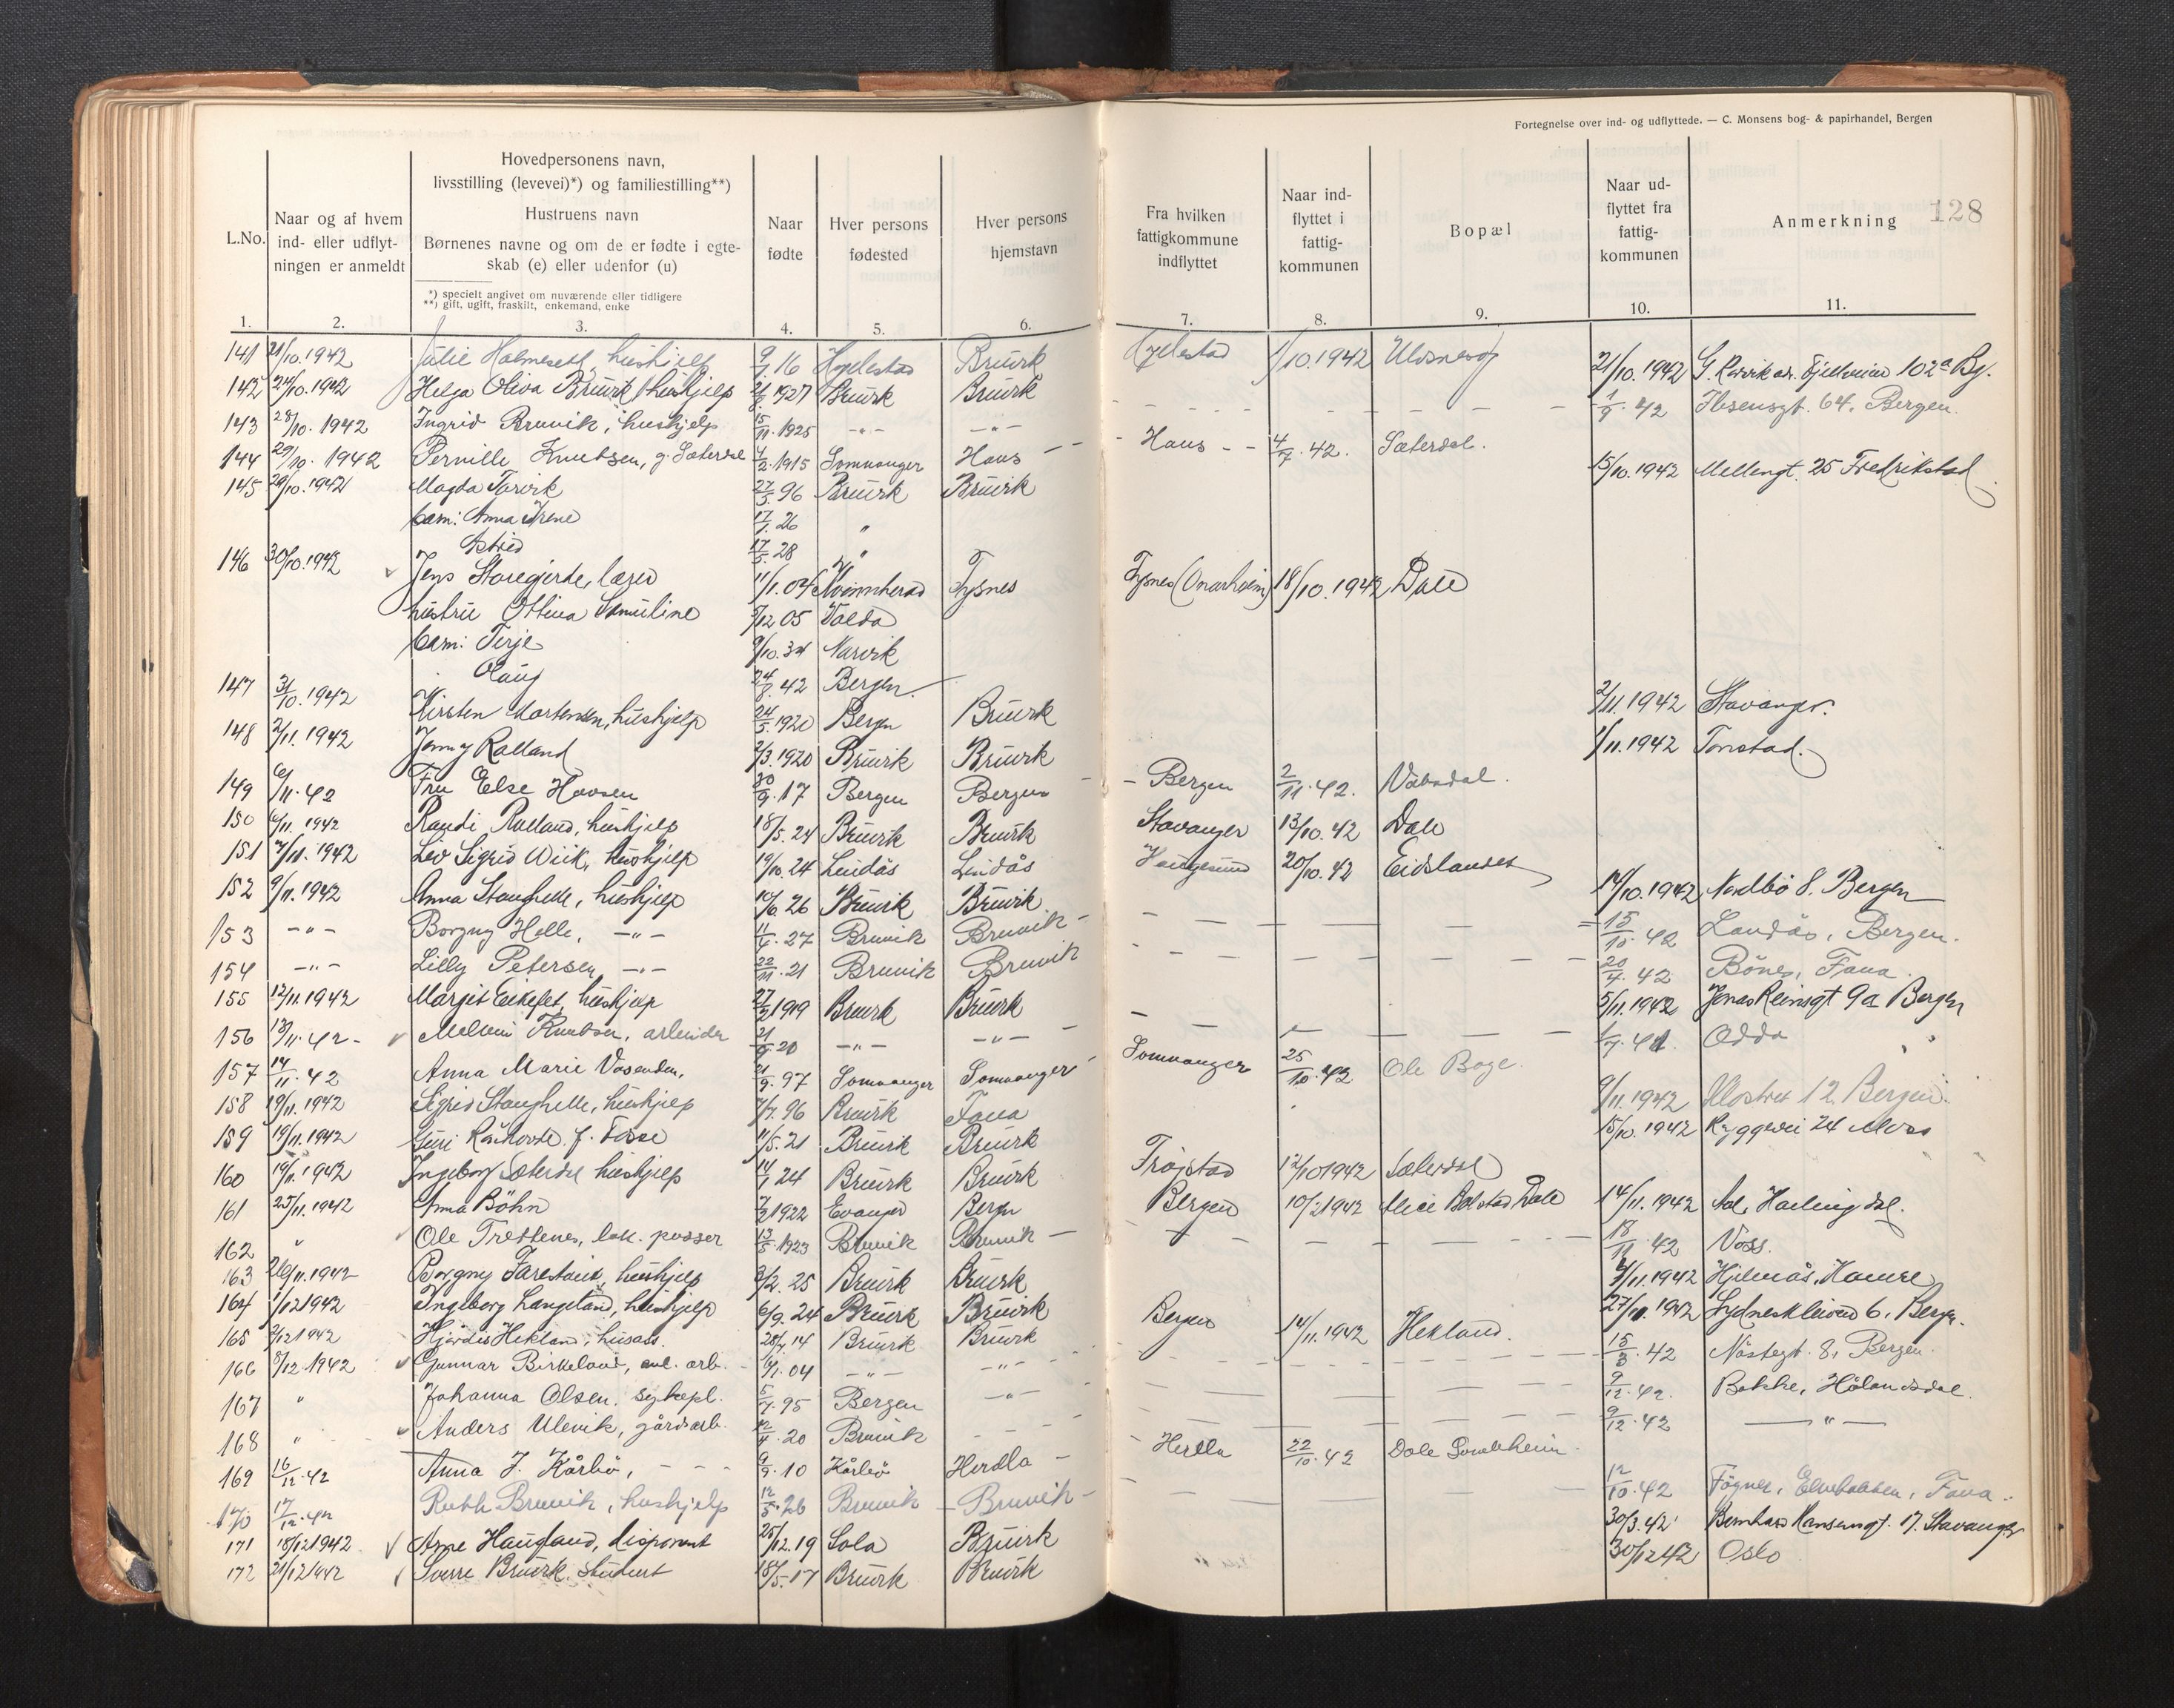 Fortegnelse over ind- og udflyttede. — C. Monsens bog- & papirhandel, Bergen
128
L.No.
Naar og af hvem ind- eller udflyt-ningen er anmeldt
Hovedpersonens navn,
livsstilling (levevei)*) og familiestilling**)
Hustruens navn
Børnenes navne og om de er fødte i egte-
skab (e) eller udenfor (u)
*) specielt angivet om nuværende eller tidligere
**) gift, ugift, fraskilt, enkemand, enke
Naar fødte
Hver persons fødested
Hver persons hjemstavn
Fra hvilken fattigkommune indflyttet
Naar ind-flyttet i fattig-kommunen
Bopæl
Naar ud-flyttet fra fattig-kommunen
Anmerkning
1. 2. 3. 4. 5. 6. 7. 8. 9. 10. 11.
141 21/10.1942 Julie Holmesett, hushjelp 16 Bruvik 1/10.1942
142 /10.1942 Helga Oliva Bruvik, hushjelp 1927 Bruvik Bruvik 21/10.1942 102a Bg.
143 28/10. 1942 Ingrid Bruvik, hushjelp 15/11.1925 -"- -"- 1/9. 42 Ibsensgt. 64, Bergen
144 29/10. 1942 Pernille Knutsen, g. Sæterdal 4/2.1915 Somnanger Haus - Haus - - 4/7. 42. Sæterdal.
145 29/10.1942 Magda Tarvik 27/5 96 Bruvik Bruvik 15/10.1942 25 Fredrikstad
barn: Anna Irene 17/1. 26 "
Astrid 17/5 28 "
146 30/10.1942 Jens Staregjerde, lærer 11/1.04 Kvinnherad Tysnes Tysnes (Onarheim) 18/10.1942 Dale
hustru Ottina Samuline /12 05 Volda
barn: Terje 9/10.34 Narvik
Olaug 24/8. 42 Bergen
147 31/10.1942 Kirsten Mortensen, hushjelp 24/5 1920 Bergen Bruvik 2/11.1942 Stavanger.
148 2/11. 1942 Jenny Rolland 2/3.1920 Bruvik Bruvik 1/11.1942 Tonstad.
149 6/11.42 Fru Else Hansen 30/9.17 Bergen Bergen - Bergen 2/11.42. Vaksdal.
150 6/11. 1942 Randi Rolland, hushjelp 18/5.24 Bruvik Bruvik Stavanger 13/10.42 Dale
151 7/11. 1942 Liv Sigrid Wiik, hushjelp 19/10.24 Lindås Lindås Haugesund 20/10.42 Eidslandet
152 9/11.1942 Anna Stanghelle, hushjelp 10/6.26 Bruvik Bruvik 14/10.1942 Nordbö 8. Bergen
153 -"- Borgny Helle, -"- 11/4.27 Bruvik Bruvik - 15/10.42 Landås, Bergen.
154 -"- Lilly Petersen -"- 22/11.21 Bruvik Bruvik 20/4. 42 Bönes, Fana.
155 12/11.1942 Margit Eikefet, hushjelp 27/2 1919 Bruvik Bruvik 5/11.1942 Jonas Reinsgt 9a Bergen
156 13/11.42- Knutsen, arbeider 21/9 20 -"- -"- - 1/7.41 Odda
157 14/11.42 Anna Marie Vasenden, 21/9.97 Somnanger Somnanger Somnanger 25/10.42 Ole Boge.
158 19/11.1942 Sigrid Stanghelle, hushjelp 7/7.96 Bruvik Fana 9/11.1942 12 Bergen.
159 19/11.1942 Guri f. Fosse 11/5.21 Bruvik Bruvik 15/10.1942 Ryggevei 24 Moss
160 19/11.1942 Ingeborg Sæterdal hushjelp 14/1 24 Bruvik Bruvik Trøgstad 12/10 1942 Sæterdal
161 25/11.1942 Anna Böhn 7/2 1922 Evanger Bergen Bergen 10/2 1942 Alice Bolstad Dale 14/11.1942 Aal, Hallingdal.
162 " Ole Trettenes, lok. pusser 13/5.1923 Bruvik Bruvik - 18/11.42 Voss.
163 26/11.1942 Borgny Farestveit, hushjelp 3/2. 25 Bruvik Bruvik /11.1942 Hjelmås, Hamre
164 1/12 1942 Ingeborg Langeland, hushjelp 6/9.24 Bruvik Bruvik 27/11.1942 Sydneskleiven 6, Bergen.
165 2/12 1942 Hjördis Hekland, husass. 28/7.14 Bruvik Bruvik Bergen 14/11.1942 Hekland.
166 8/12.1942 Gunnar Birkeland, anl. arb. - /1.04 -"- -"- 15/3.42 Nöstegt. 8, Bergen.
167 " Johanna Olsen, sykepl. 5/7.95 Bergen -"- 9/12.42. Bakke, Hålandsdal.
168 " Anders Ulevik, gårdsarb. 12/4.20 Bruvik - - 9/12.42 -"-
169 16/12.42 Anna J. Kårbö, - - - 9/9.10 Kårbö Herdla - Herdla 22/10.42 Dale
170 17/12.42 Ruth Bruvik, hushjelp 12/5.26 Bruvik - Bruvik - 12/10.42 Fana.
171 18/12 1942 Arne Haugland, disponent 25/12.19 Sola Bruvik 30/3.42 17. Stavanger
172 21/12 1942 Sverre Bruvik, student 18/5.17 Bruvik Bruvik 30/12 42 Oslo